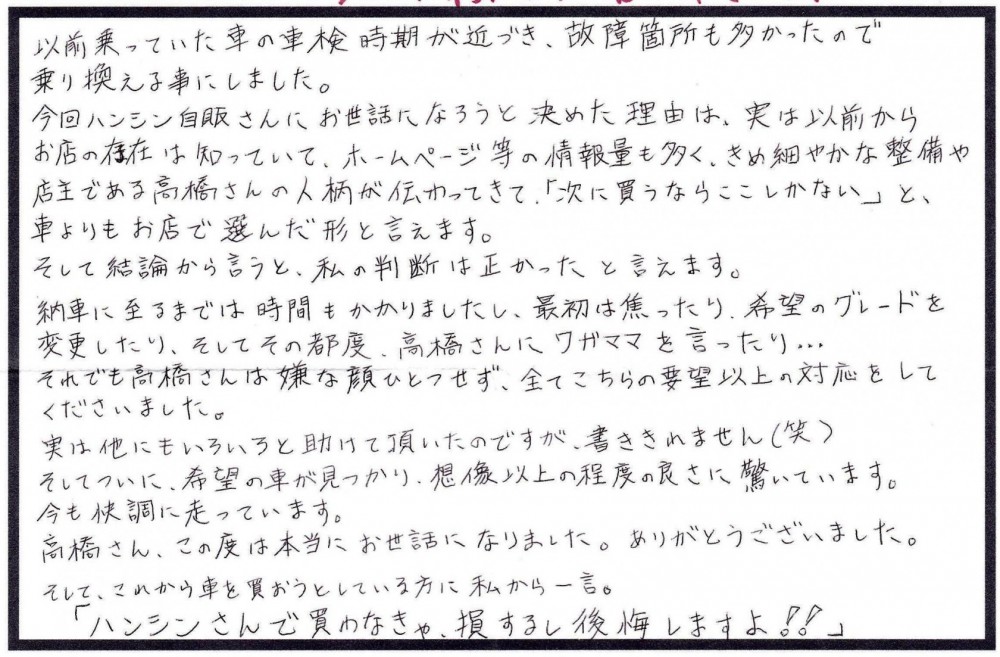 以前乗っていた車の車検時期が近づき、故障箇所も多かったので
乗り換える事にしました。
今回ハンシン自販さんにお世話になろうと決めた理由は、実は以前から
お店の存在は知っていて、ホームページ等の情報量も多く、きめ細やかな整備や
店主である高橋さんの人柄が伝わってきて、「次に買うならここしかない」と、
車よりもお店で選んだ形と言えます。
そして結論から言うと、私の判断は正かったと言えます。
納車に至るまでは時間もかかりましたし、最初は焦ったり、希望のグレードを
変更したり、そしてその都度、高橋さんにワガママを言ったり…
それでも高橋さんは嫌な顔ひとつせず、全てこちらの要望以上の対応をして
くださいました。
実は他にもいろいろと助けて頂いたのですが、書ききれません(笑)
そしてついに、希望の車が見つかり、想像以上の程度の良さに驚いています。
今も快調に走っています。
高橋さん、この度は本当にお世話になりました。ありがとうございました。
そして、これから車を買おうとしている方に私から一言。
「ハンシンさんで買わなきゃ、損するし後悔しますよ!!」